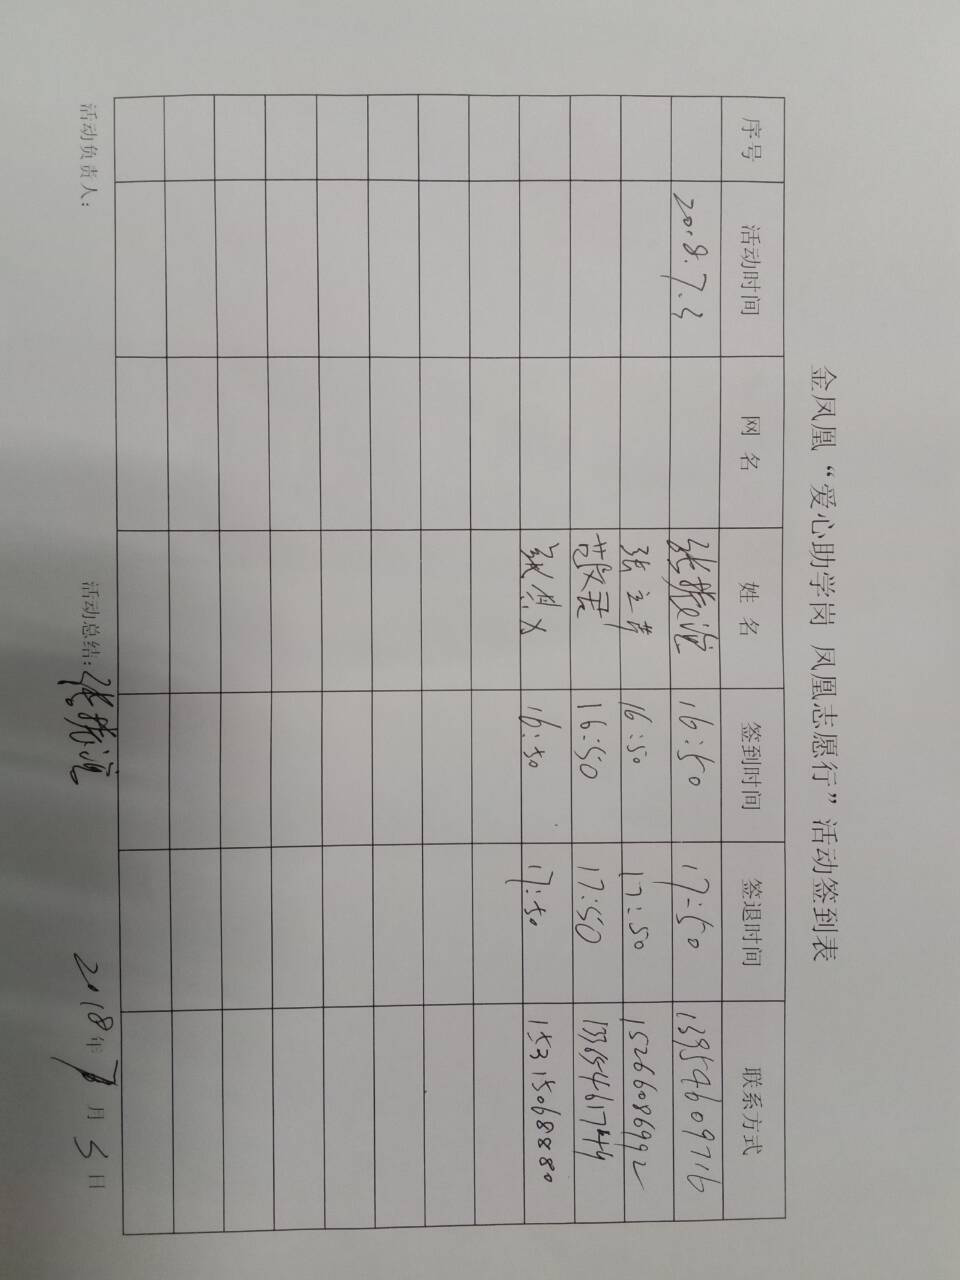 金凤凰“爱心助学岗 凤凰志愿行”活动签到表
序号 活动时间 网 名 姓 名 签到时间 签退时间 联系方式
2018.7.3 张振远 16:50 17:50 13954609716
张立 16:50 17:50 15266086992
范文君 16:50 17:50 13365461744
16:50 17:50 15315068880
活动负责人: 活动总结: 张振远 2018年7月3日